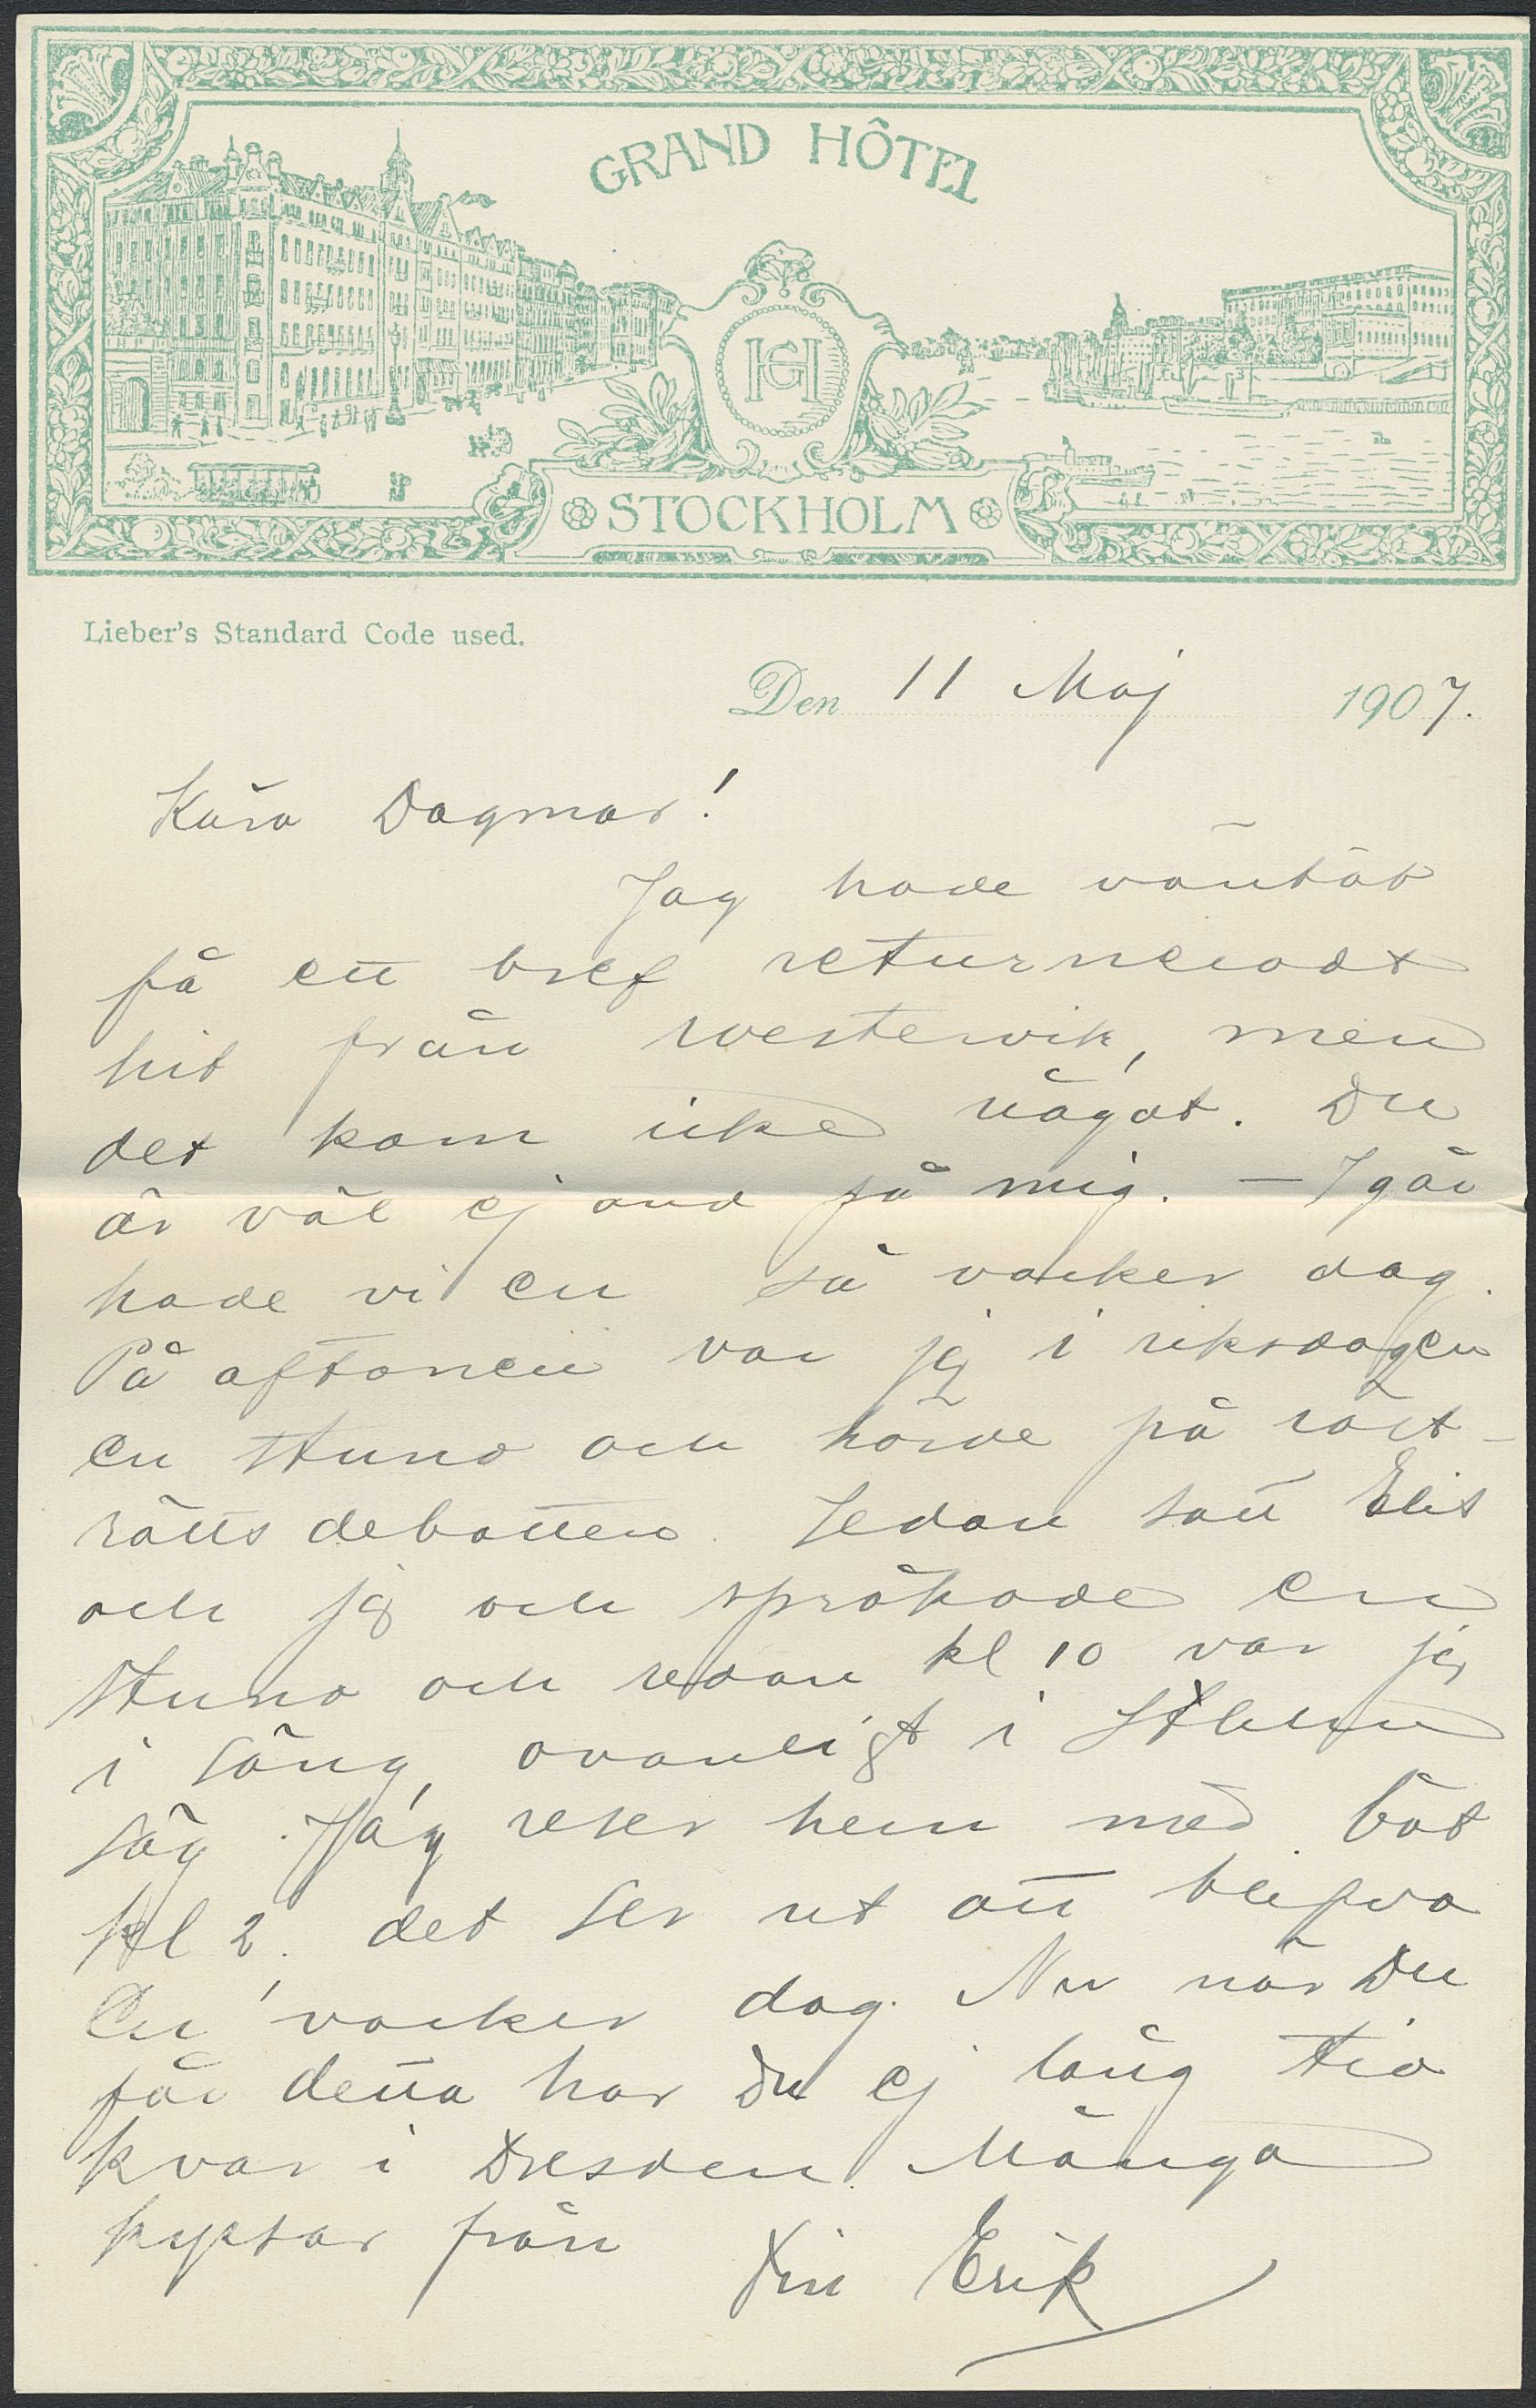 GRAND HÔTEL
GH
STOCKHOLM
Lieber's Standard Code used.
Den 11 Maj 1907.
Kära Dagmar!
Jag hade väntat
få ett bref returneradt
hit från Westervik, men
det kom icke något. Du
är väl ej ond på mig. — Igår
hade vi en så vacker dag.
På aftonen var jag i riksdagen
en stund och hörde på röst-
rätts debatten. Sedan satt Elis
och jag och språkade en
stund och redan kl 10 var jag
i säng, ovanligt i Sthlm
säg. Jag reser hem med båt
kl 2. det ser ut att blifva
en vacker dag. Nu när Du
får detta har Du ej lång tid
kvar i Dresden. Många
kyssar från
Din Erik